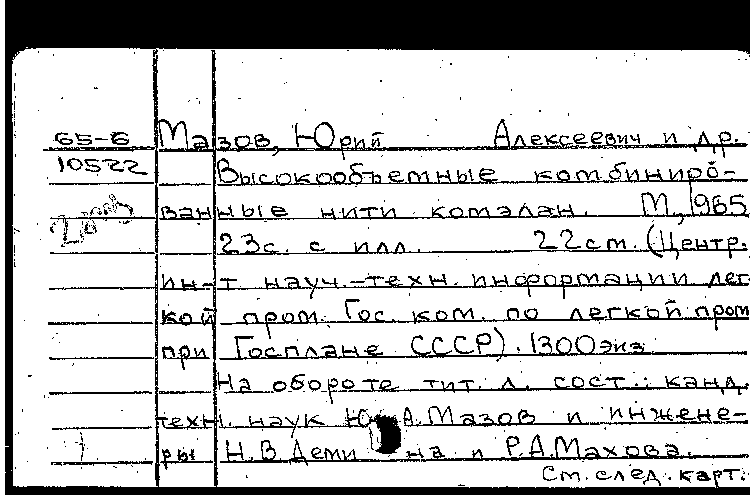 65-6 Мазов, Юрий Алексеевич и др.
10522 Высокообъемные комбиниро-
ванные нити комэлан. М, 1965
23с. с илл. 22см. (Центр.
ин-т науч.-техн. информации лег-
кой пром. Гос. ком. по легкой пром
при Госплане СССР). 1300экз
На обороте тит. л. сост.: канд.
техн. наук Ю.А.Мазов и инжене-
ры Н.В.Деми на и Р.А.Махова.
См. след. карт.